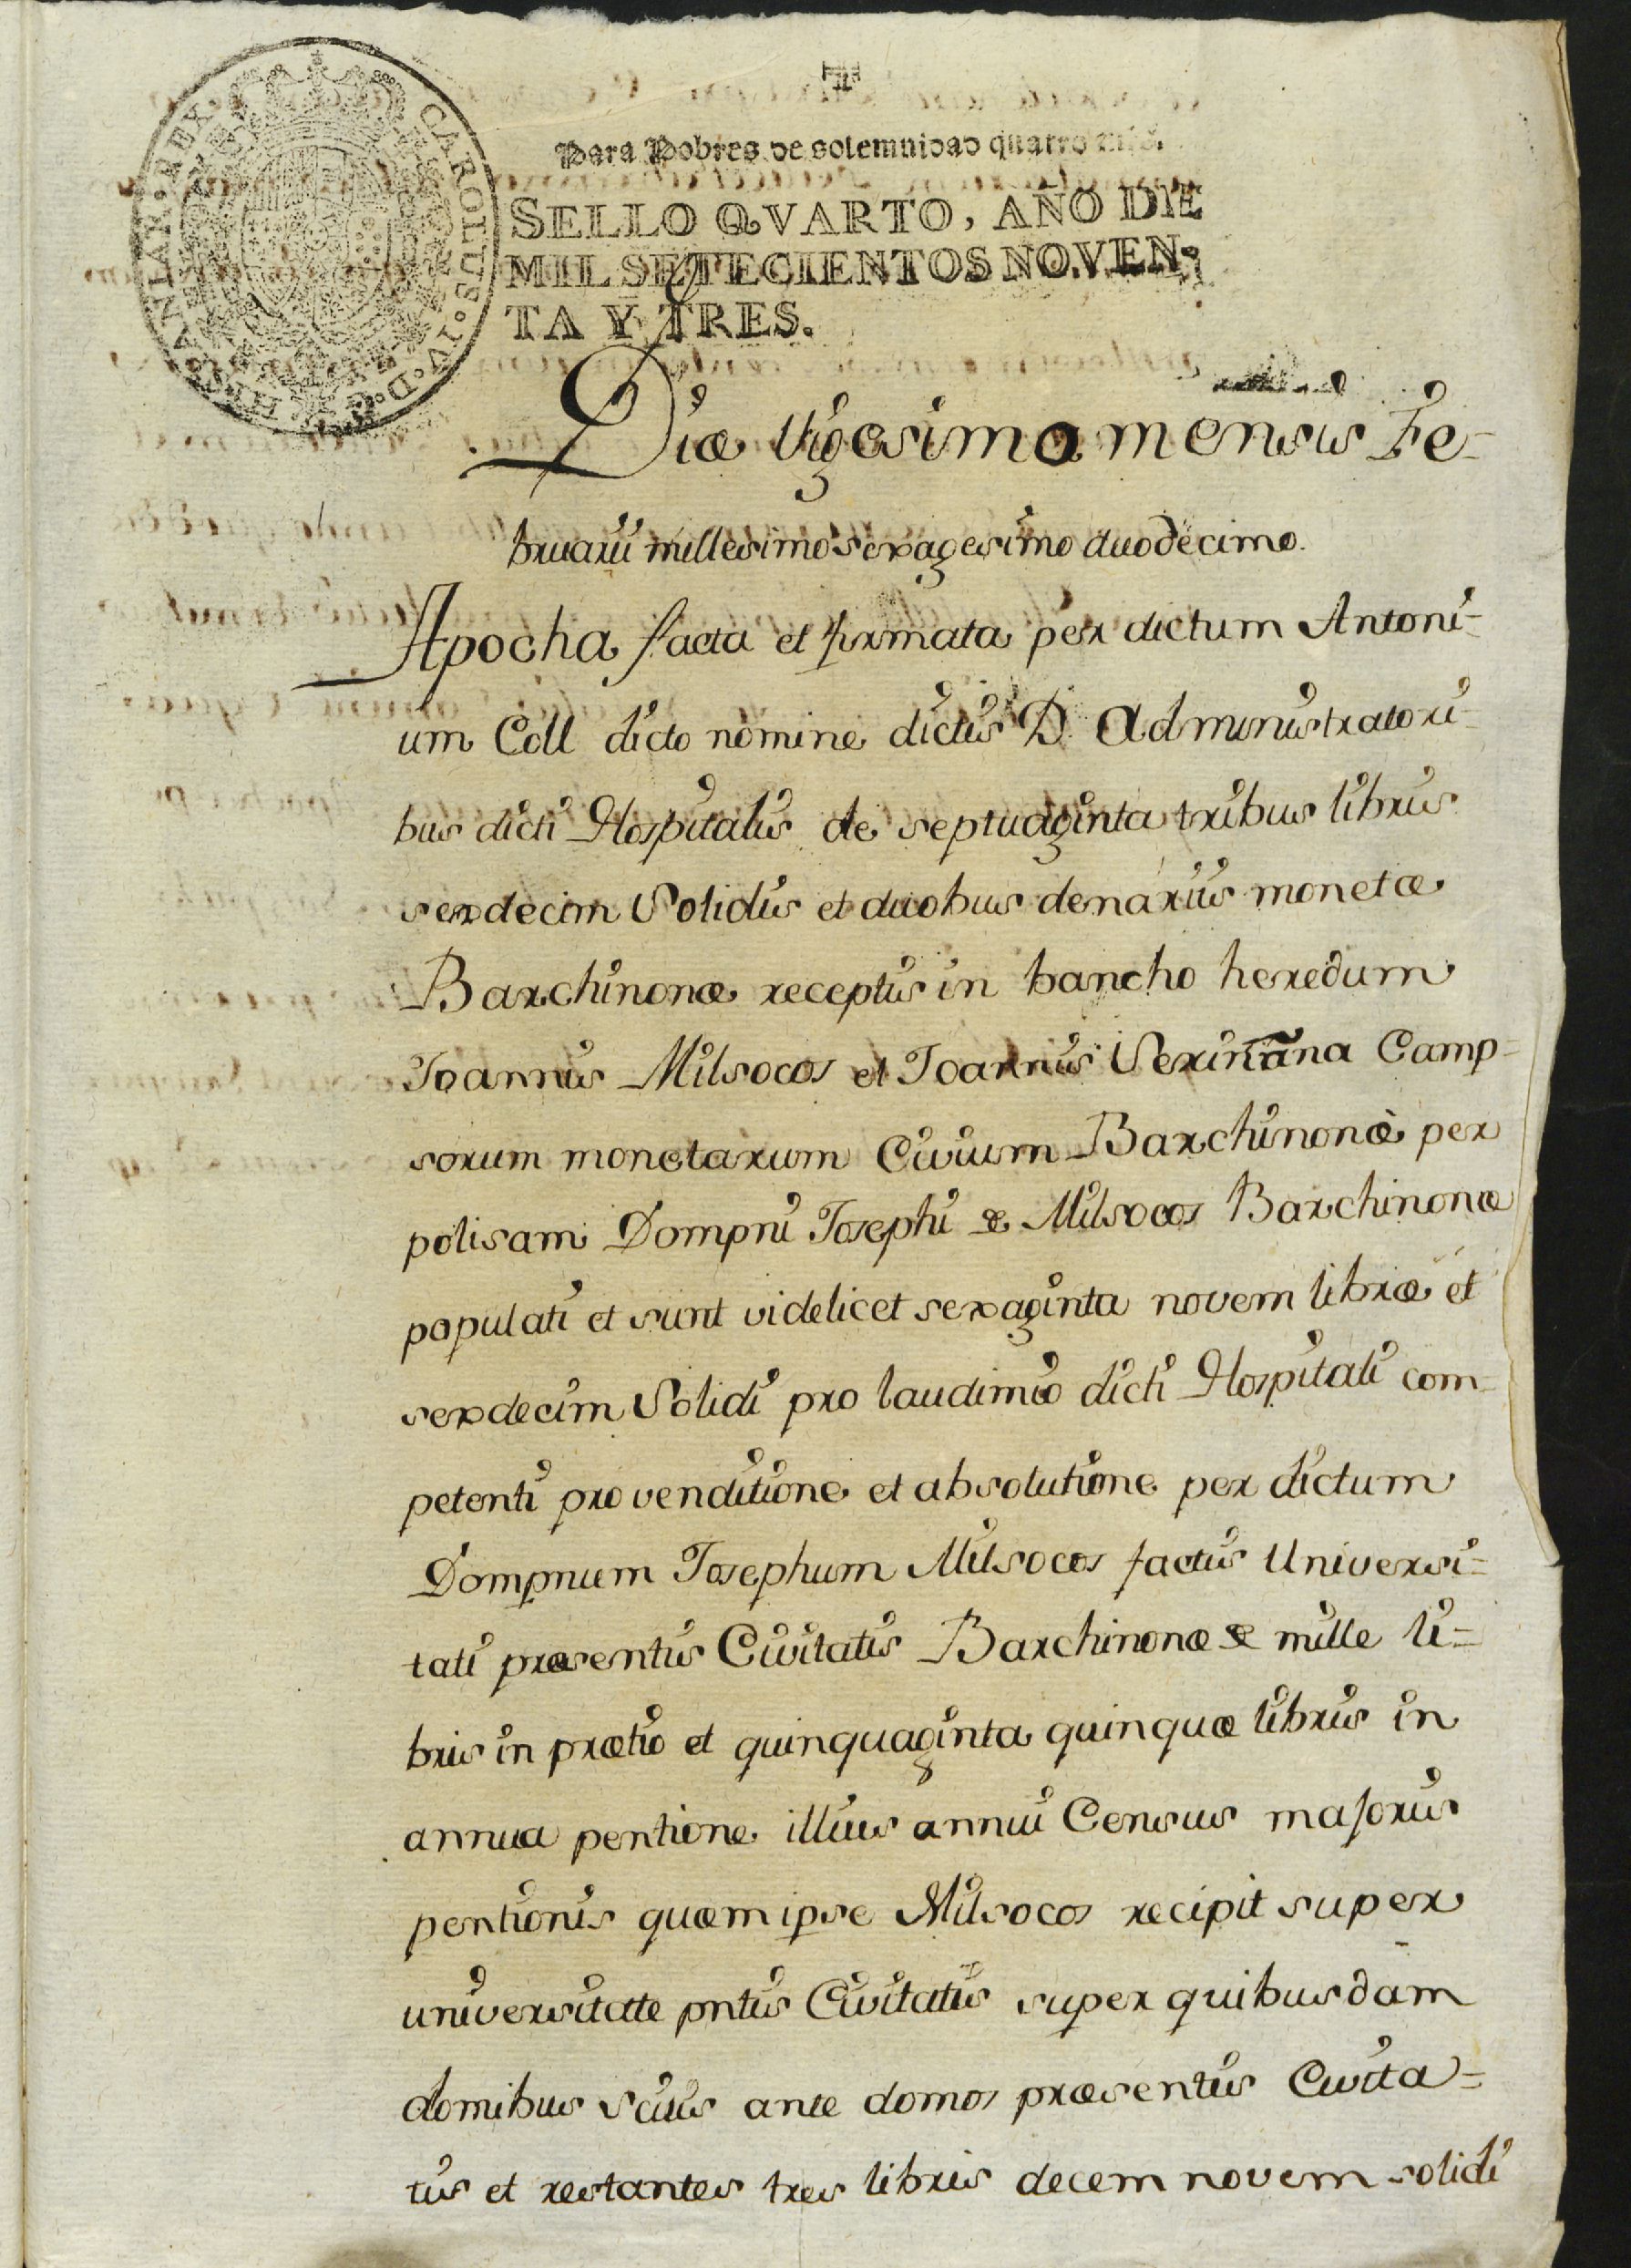 CAROLUS·IV·D·G·HISPANIAR·REX·
Para Pobres de solemnidad quatro mrs.
SELLO QVARTO, AÑO DE
MIL SETECIENTOS NOVEN-
TA Y TRES.
Diæ Vigesimo mensis Fe-
bruarii millesimo sexagesimo duodecimo.
Apocha facta et firmata per dictum Antoni-
um Coll dicto nomine dictis D. Administratori-
bus dicti Hospitalis de septuaginta tribus libris
sexdecim Solidis et duobus denariis monetæ
Barchinonæ receptis in bancho heredum
Joannis Milsocos et Joannis Seriñana Camp-
sorum monetarum Civium Barchinonæ per
polisam Dompni Josephi de Milsocos Barchinonæ
populati et sunt videlicet sexaginta novem libræ et
sexdecim Solidi pro laudimio dicti Hospitali com-
petenti pro venditione et absolutione per dictum
Dompnum Josephum Milsocos factis Universi-
tati præsentis Civitatis Barchinonæ de mille li-
bris in prætio et quinquaginta quinquæ libris in
annua pentione illius annui Census majoris
pentionis quæm ipse Milsocos recipit super
universitate pntis Civitatis super quibusdam
domibus scitis ante domos præsentis Civita-
tis et restantes tres libris decem novem solidi